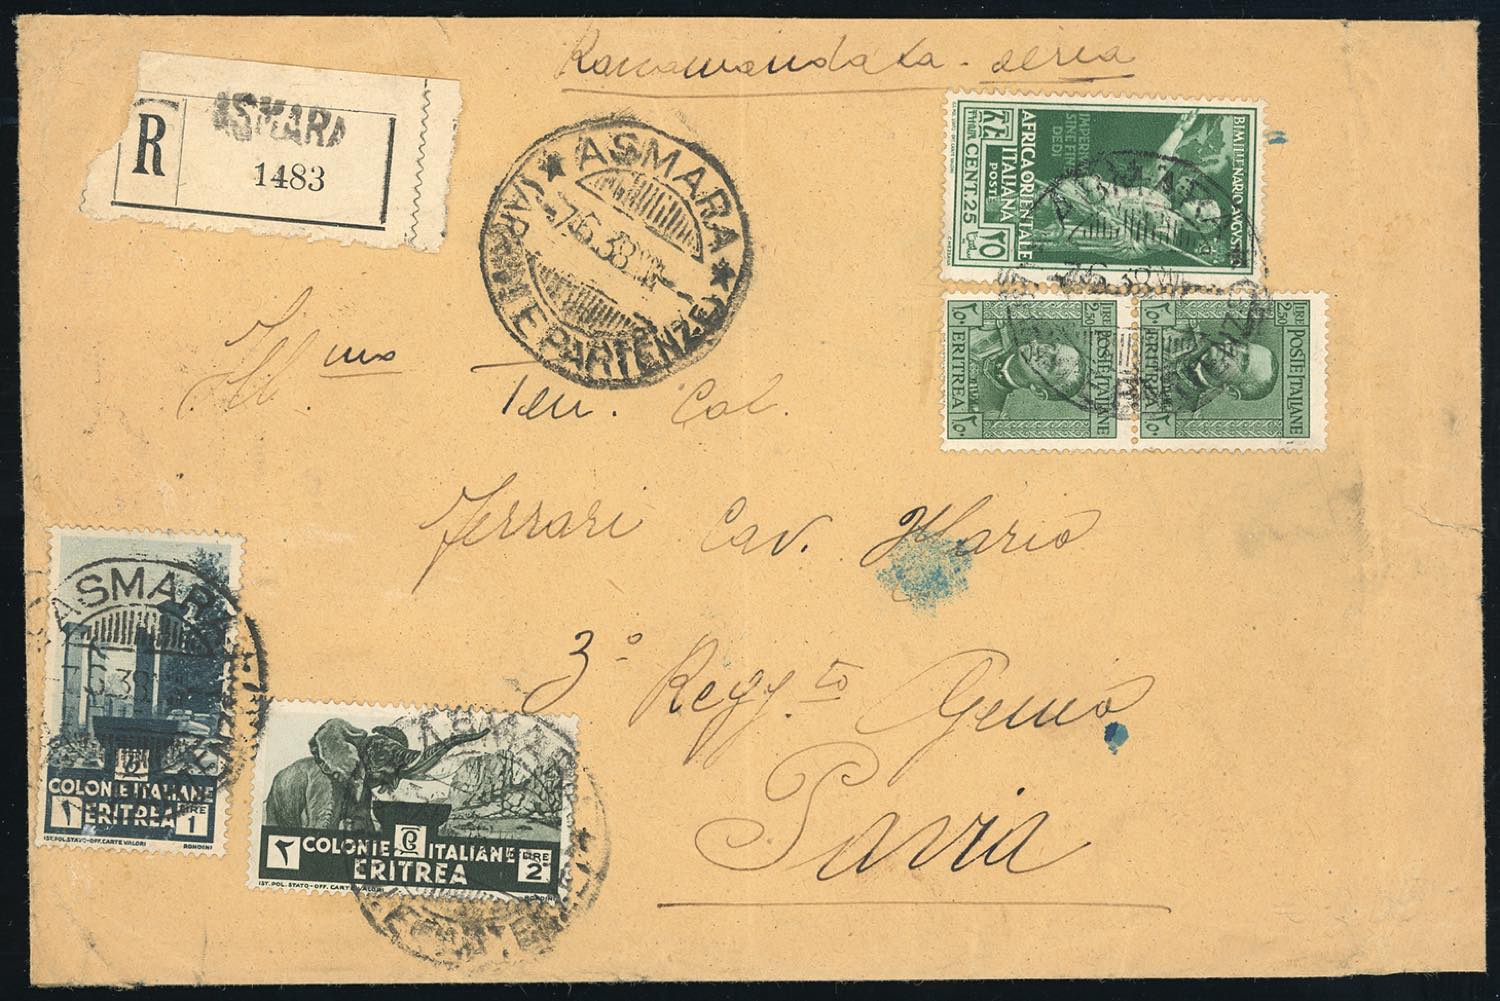 Raccomandata - aerea
R
ASMARA
1483
ASMARA
7.6.38
PARTENZE
BIMILLENARIO AVGVSTEO
IMPERIV
SINE FINE
DEDI
AFRICA ORIENTALE
ITALIANA
POSTE
CENT. 25
٢٥
LIRE
2,50
POSTE ITALIANE
ERITREA
٢,٥٠
LIRE
2,50
POSTE ITALIANE
ERITREA
٢,٥٠
ASMARA
Ill.mo Ten. Col.
Ferrari Cav. Mario
3° Regg.to Genio
Pavia
ASMARA
7.6.38
COLONIE ITALIANE
١ ERITREA LIRE 1
IST. POL. STATO-OFF. CARTE VALORI RONDINI
ASMARA
٢ COLONIE ITALIANE LIRE 2
ERITREA
IST. POL. STATO-OFF. CARTE VALORI RONDINI